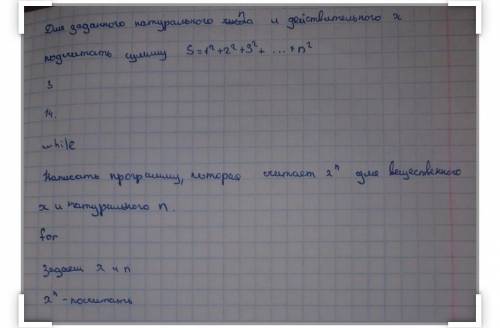 Для заданного натурального n и действительного x
подсчитать сумму S = 1² + 2² + 3² + ... + n²
3
14.
while
Написать программу, которая считает xⁿ для вещественного
x и натурального n.
for
Задаем x и n
xⁿ - посчитать